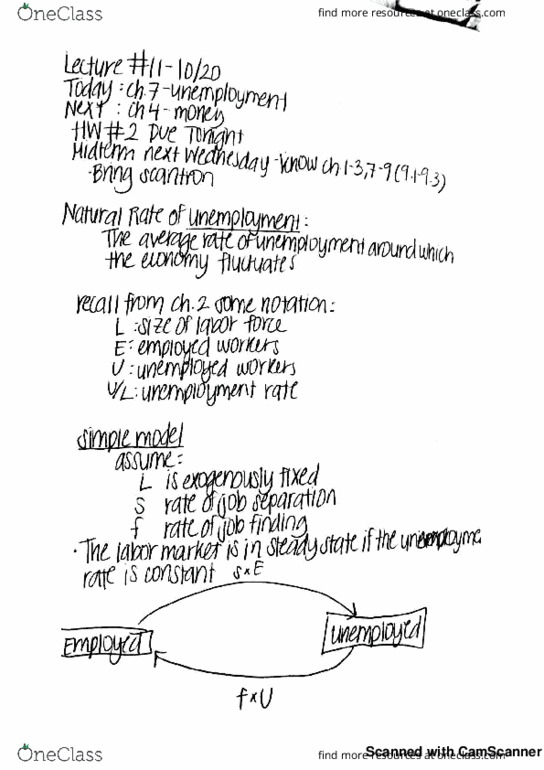 OneClass
find more resources at oneclass.com
Lecture #11-10/20
Today: ch.7-unemployment
Next: ch 4-money
HW #2 Due Tonight
Midterm next Wednesday-know ch 1-3,7-9(9.1-9.3)
·Bring scantron
Natural Rate of unemployment:
The average rate of unemployment around which
the economy fluctuates
recall from ch.2 some notation:
L: size of labor force
E: employed workers
U: unemployed workers
U/L: unemployment rate
simple model
assume:
L is exogenously fixed
S rate of job separation
f rate of job finding
·The labor market is in steady state if the unemployme
rate is constant
s×E
Employed
unemployed
f×U
OneClass
find more resources at oneclass.com
Scanned with CamScanner